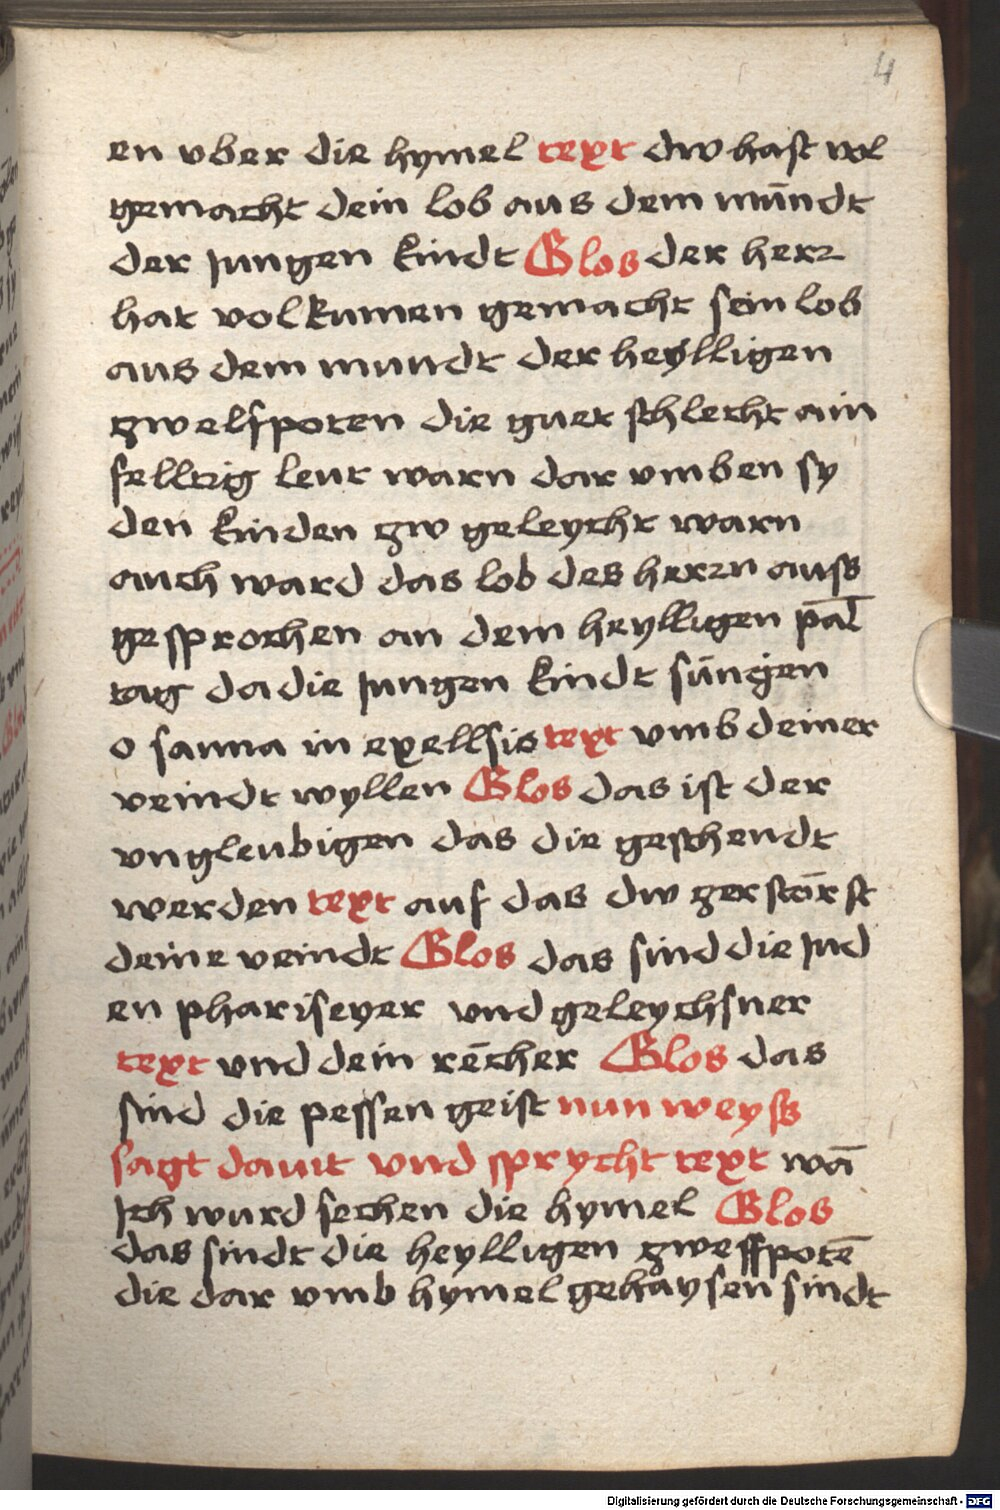 4
en vber die hymel text dw hast wol
gemacht dein lob aus dem mūndt
der jungen kindt Glos der herr
hat volkumen gemacht sein lob
aus dem mundt der heylligen
zwelfpoten die guet schlecht ain
felltig leut warn dar vmben sy
den kinden zw geleycht warn
auch ward das lob des herrn auss
gesprochen an dem heylligen pal̄
tag da die jungen kindt sūngen
o sanna in exellsis text vmb deiner
veindt wyllen Glos das ist der
vngleubigen das die geschendt
werden text auf das dw zerstōrst
deine veindt Glos das sind die jud
en phariseyer vnd geleychsner
text vnd dein rēcher Glos das
sind die pessen geist nun weyss
sagt dauit vnd sprycht text wā
jch wurd sechen die hymel Glos
das sindt die heylligen zwelfpotē
die dar vmb hymel gehaysen sindt
Digitalisierung gefördert durch die Deutsche Forschungsgemeinschaft - DFG